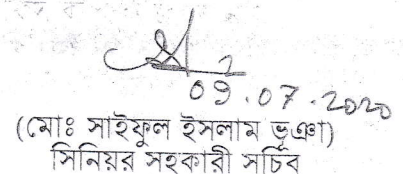 09.07.2020
(মোঃ সাইফুল ইসলাম ভূঞা)
সিনিয়র সহকারী সচিব